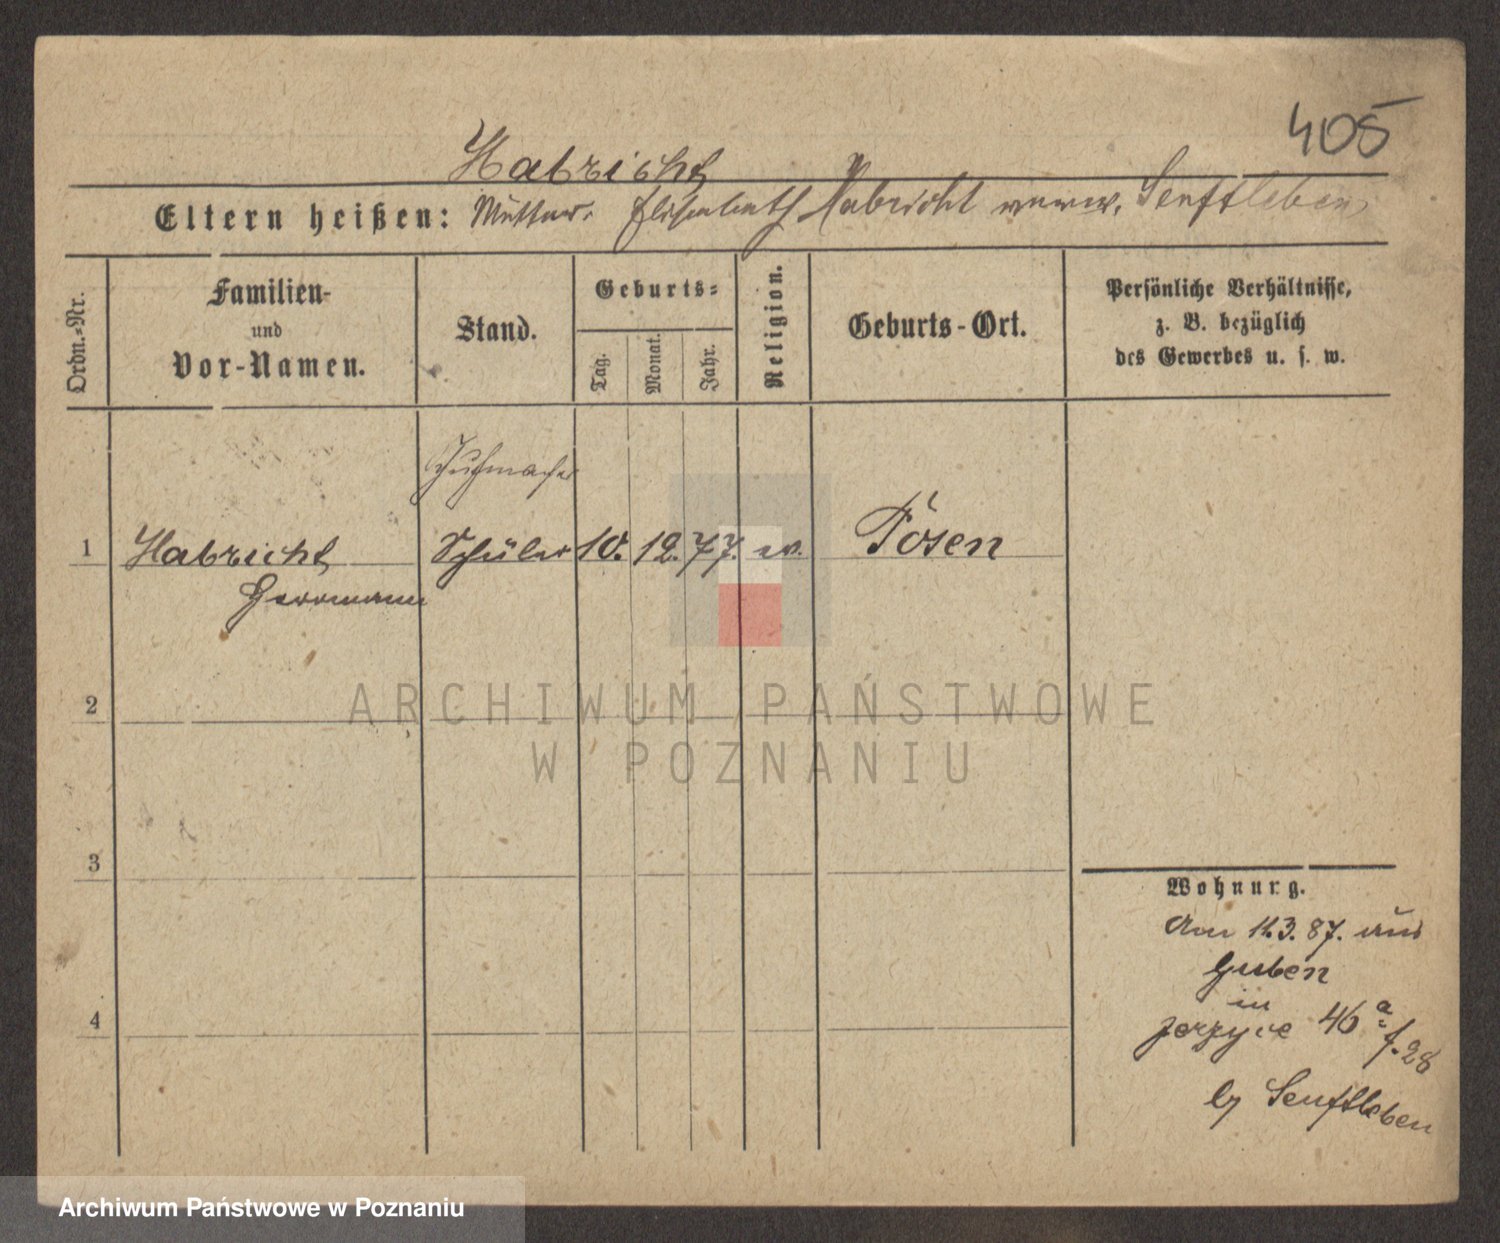 405
Habricht
Eltern heißen: Mutter: Elisabeth Habricht verw. Senftleben
Ordn.-Nr.
Familien-
und
Vor-Namen.
Stand.
Geburts-
Tag.
Monat.
Jahr.
Religion.
Geburts-Ort.
Persönliche Verhältnisse,
z. B. bezüglich
des Gewerbes u. s. w.
1
Habricht
Herrmann
Schüler
10.
12.
77.
ev.
Posen
2
3
4
Wohnung.
Am 11.3.87. aus
Guben
in
Jerzyce 46 a f. 28
by Senftleben
ARCHIWUM PAŃSTWOWE
W POZNANIU
Archiwum Państwowe w Poznaniu